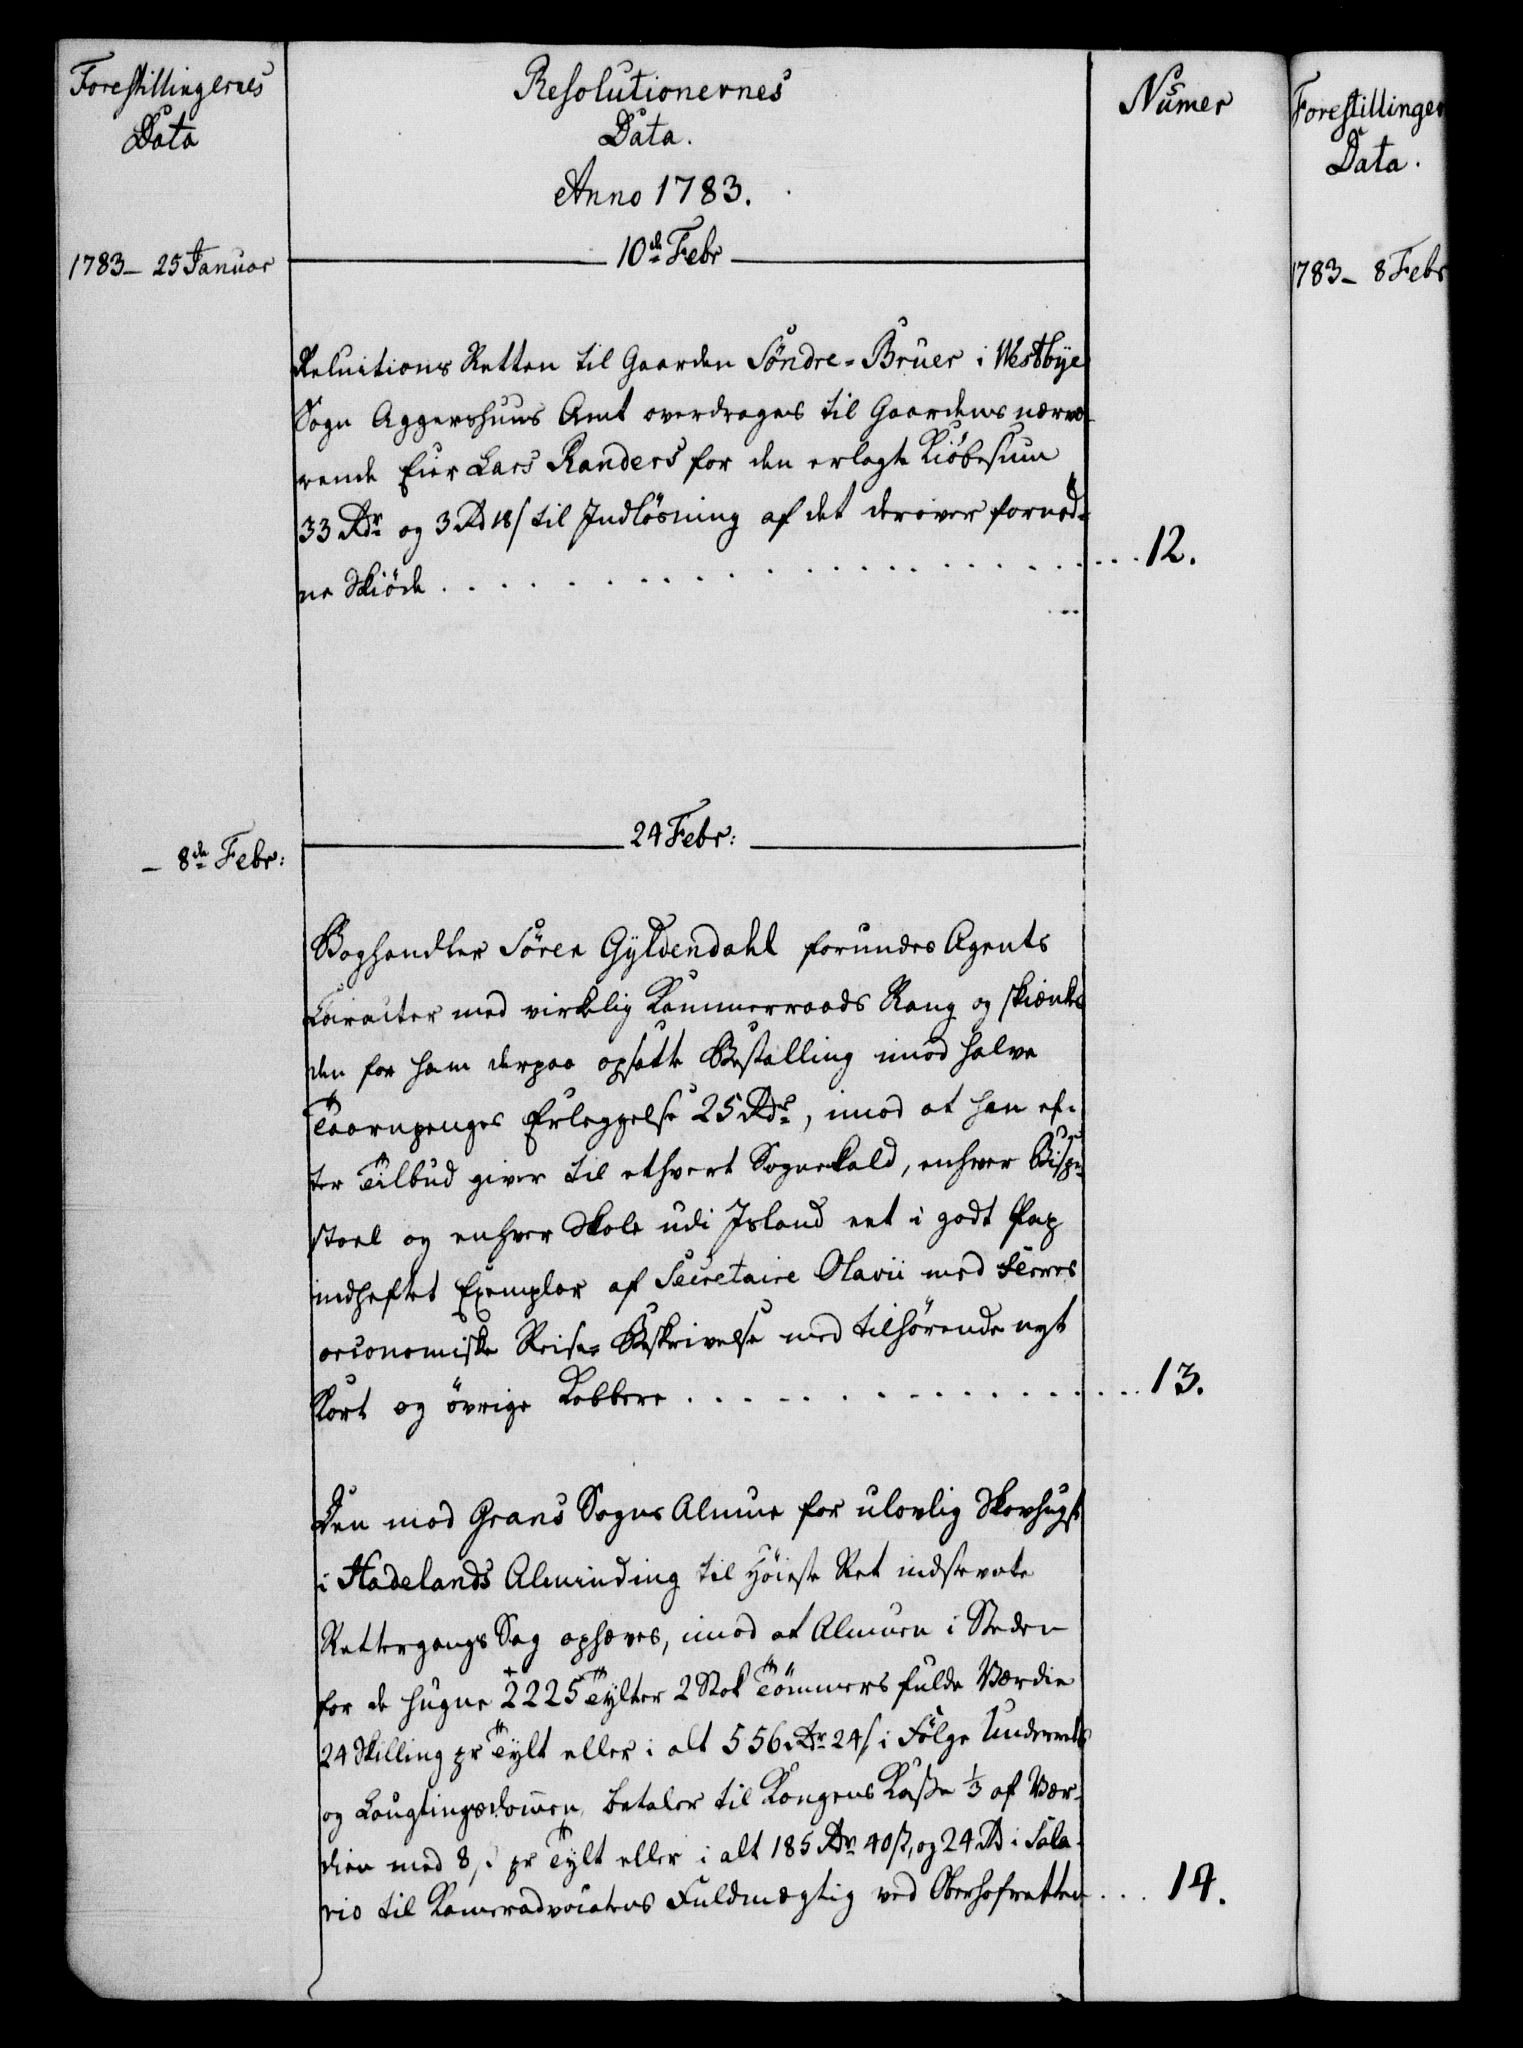 Forestillingernes
Data
Resolutionernes
Data.
Anno 1783.
Numer
Forestillinger
Data.
1783 – 25 Januar
10de Febr
1783 – 8 Febr
Reluitions Retten til Gaarden Söndre-Bruer i Westbye
Sogn Aggershuus Amt overdrages til Gaardens nærvæ-
rende Eier Lars Randers for den erlagte Kiöbesum
33 Rdr og 3 Rd 18 s til Indlösning af det derover fornöd-
ne Skiöde . . . . . . . . . . . . 12.
– 8de Febr:
24 Febr:
Boghandler Sören Gyldendahl forundes Agents
Caracter med virkelig Kammerraads Rang og skiænkes
den for ham derpaa opsatte Bestalling imod halve
Taarnpenges Erleggelse 25 Rdr, imod at han ef-
ter Tilbud giver til ethvert Sognekald, enhver Bispe-
stoel og enhver Skole udi Island eet i godt Pap
indheftet Exemplar af Secretaire Olavii med fleeres
oeconomiske Reise-Beskrivelse med tilhörende nyt
Kort og övrige Kobbere . . . . . . . . . . 13.
Den mod Grans Sogns Almue for ulovlig Skovhugst
i Hadelands Alminding til Höieste Ret indstevnte
Rettergangs Sag ophæves, imod at Almuen i Steden
for de hugne 2225 Tylter 2 Stok Tömmers fulde Værdie
24 Skilling pr Tylt eller i alt 556 Rdr 24 s i Fölge Underrets
og Laugtingsdommen, betaler til Kongens Kasse 1/3 af Vær-
dien med 8 s pr Tylt eller i alt 185 Rdr 40 s, og 24 Rd i Sala-
rio til Kameradvocatens Fuldmægtig ved Oberhofretten . . . 14.